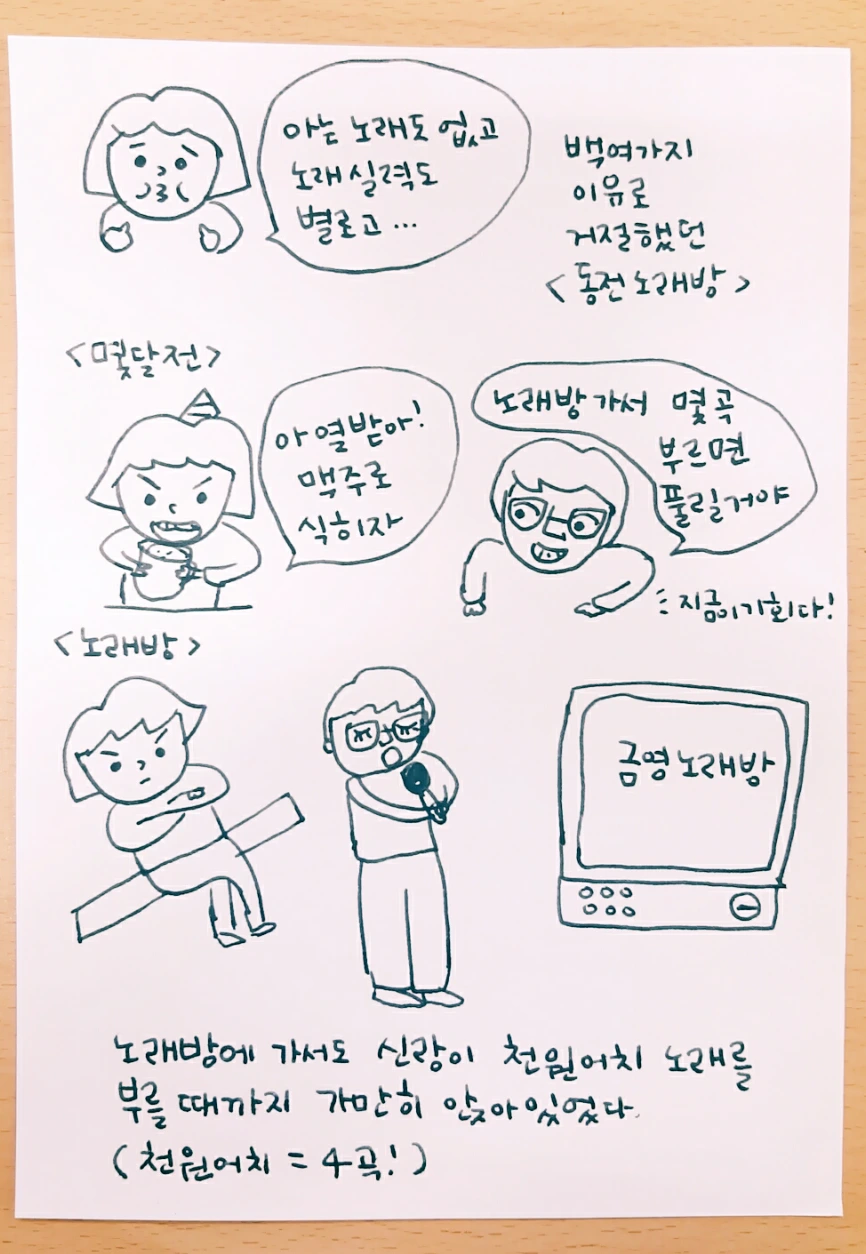 아는 노래도 없고
노래실력도
별로고...
백여가지
이유로
거절했던
<동전노래방>
<몇달전>
아 열받아!
맥주로
식히자
노래방가서 몇곡
부르면
풀릴거야
지금이기회다!
<노래방>
금영노래방
노래방에 가서도 신랑이 천원어치 노래를
부를 때까지 가만히 앉아있었다.
(천원어치 = 4곡!)